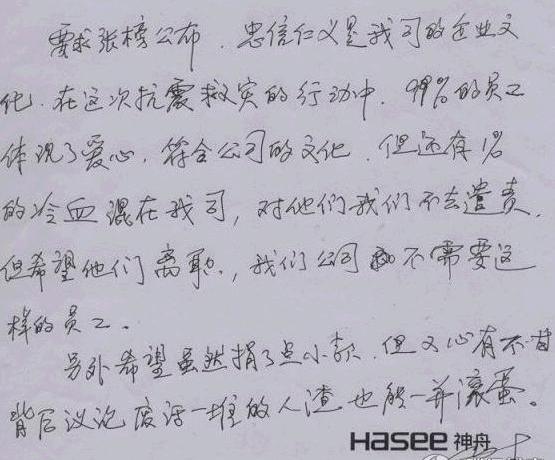 要求张榜公布．忠信仁义是我司的企业文
化．在这次抗震救灾的行动中．99%的员工
体现了爱心．符合公司的文化．但还有1%
的冷血混在我司，对他们我们不去遣责．
但希望他们离职．，我们公司不需要这
样的员工。
另外希望虽然捐了点小款．但又心有不甘
背后议论废话一堆的人渣也能一并滚蛋。
Hasee 神舟